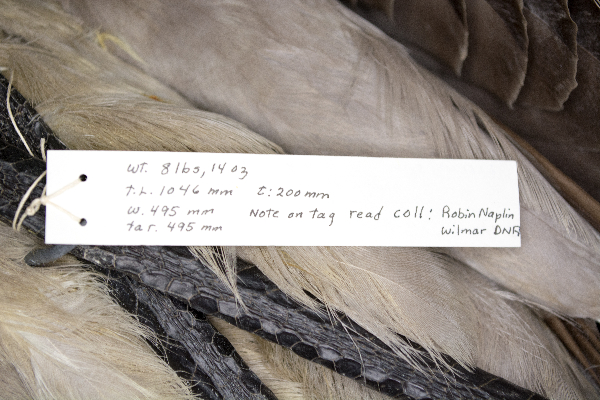 wt. 8 lbs, 14 oz
t.L. 1046 mm t: 200 mm
w. 495 mm Note on tag read coll: Robin Naplin
tar. 495 mm Wilmar DNR